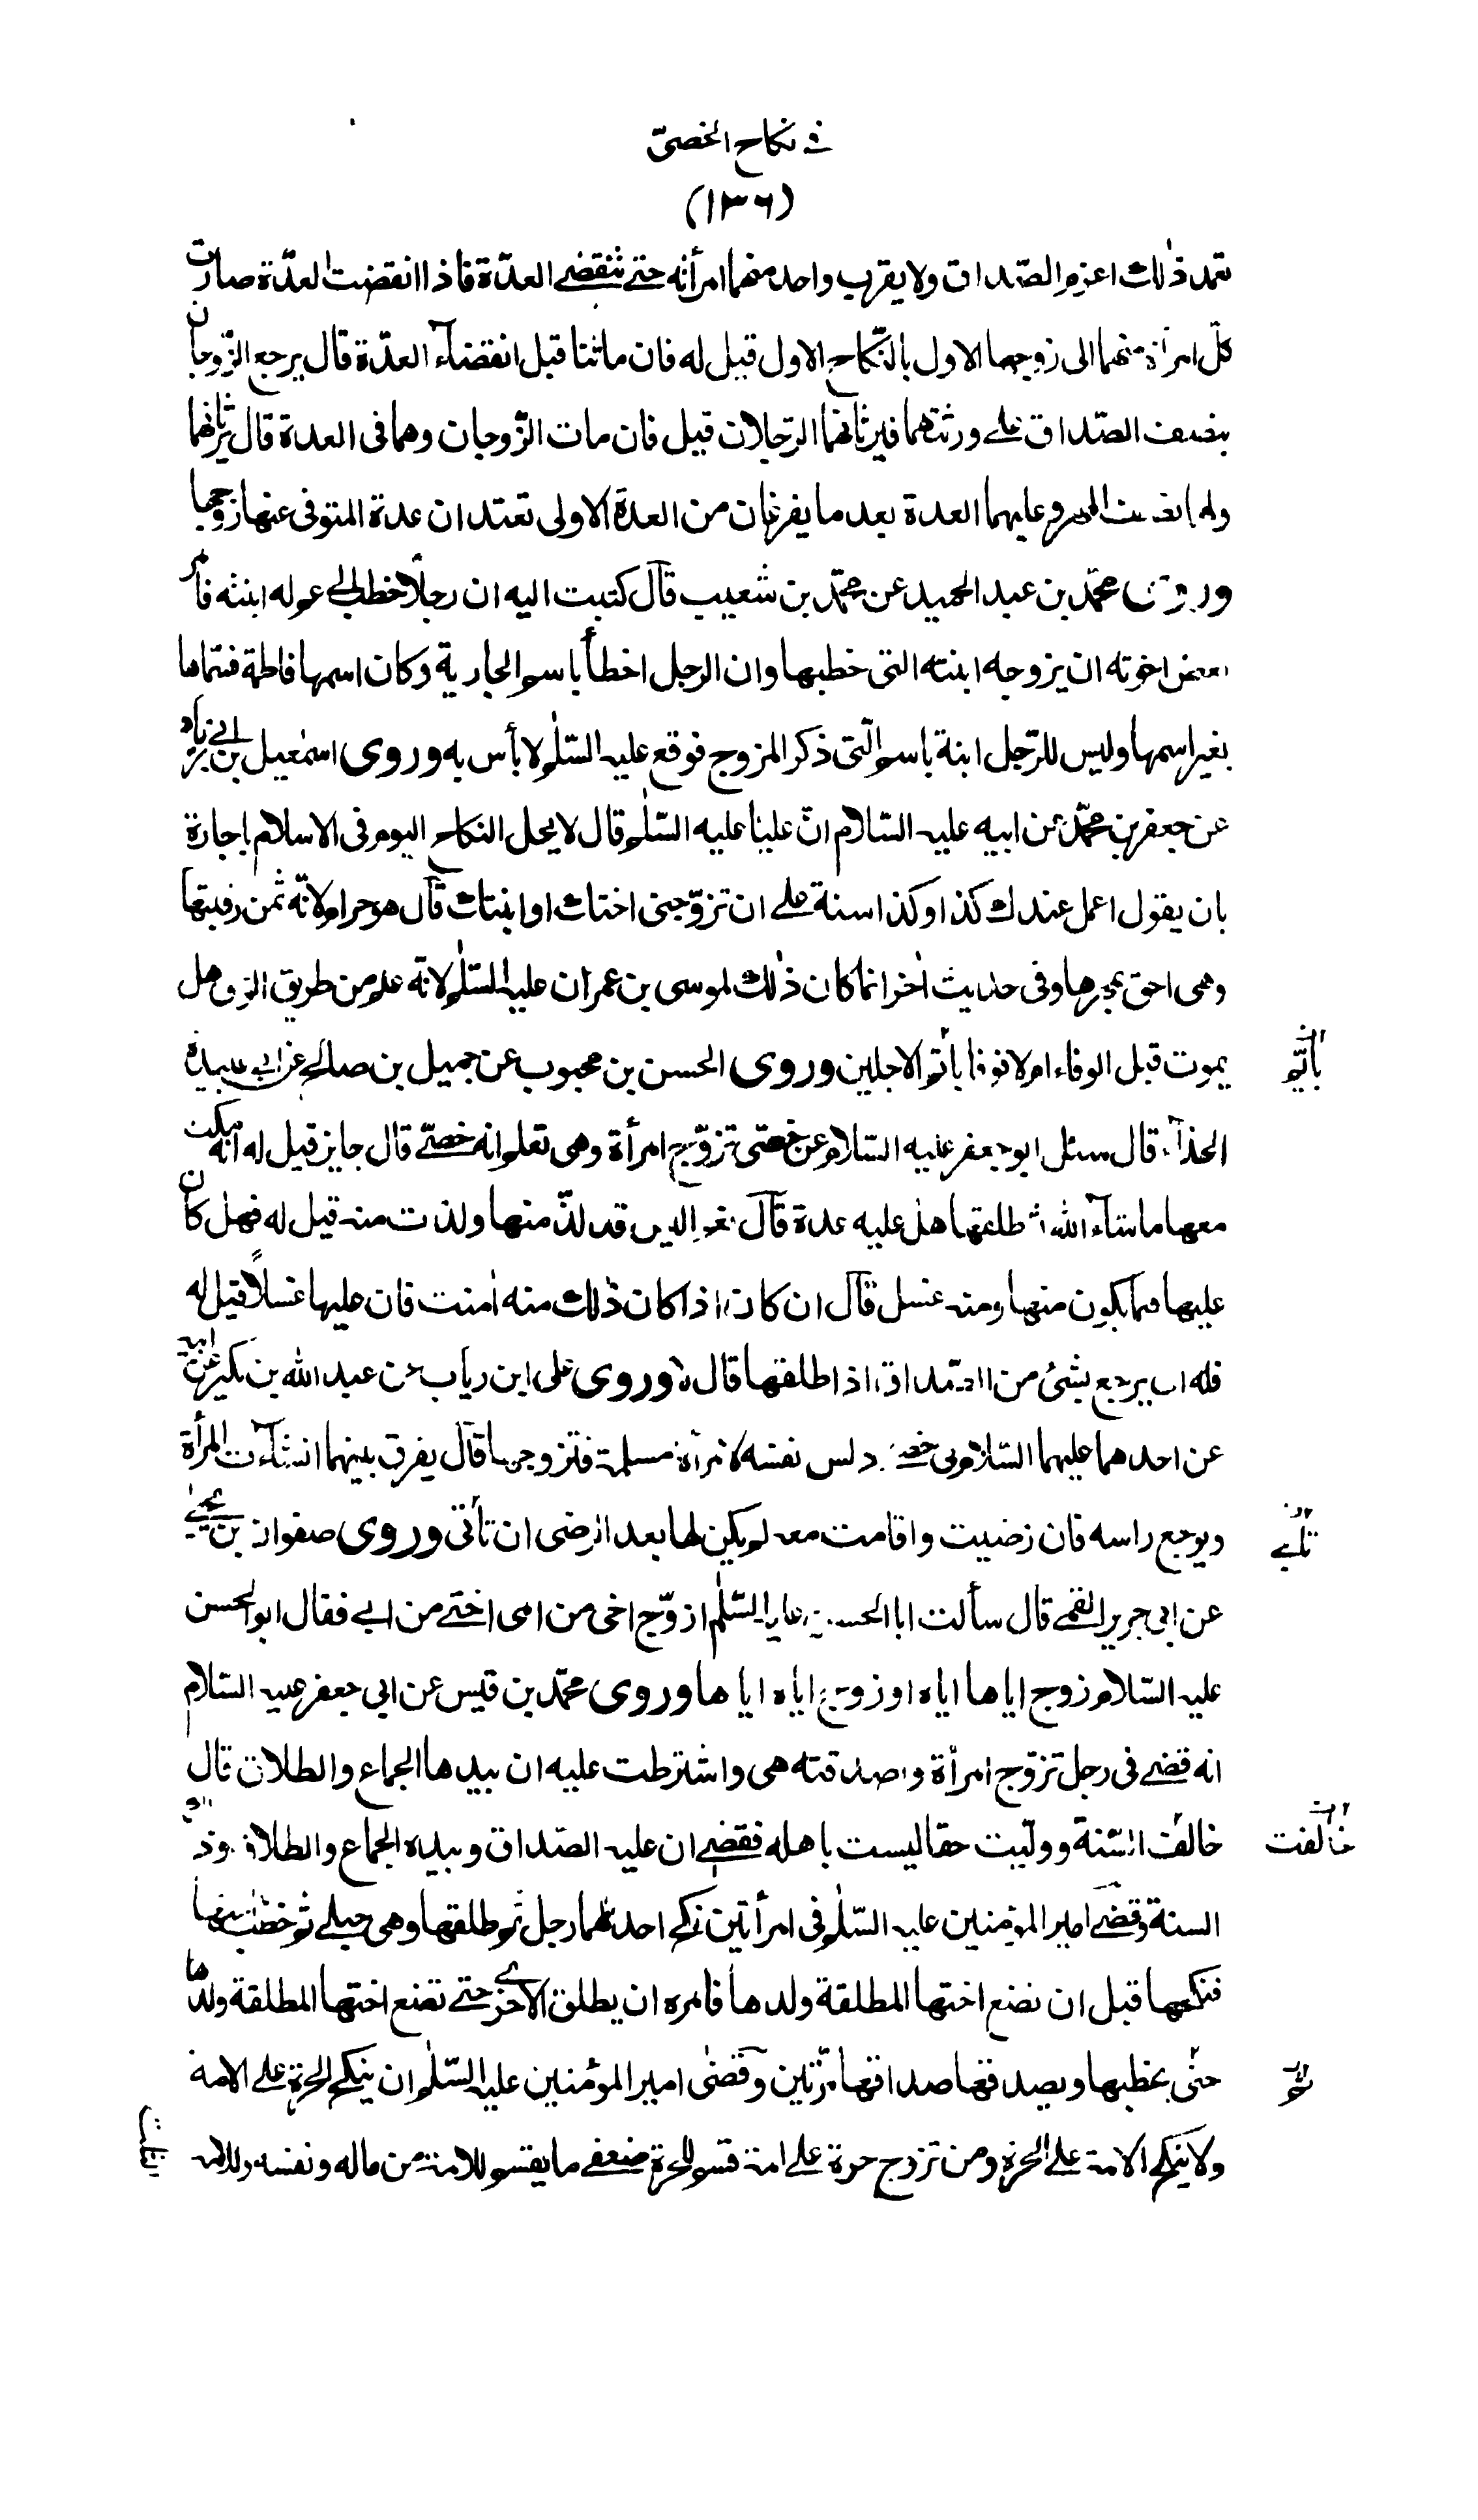 في نكاح الخصىّ
(١٣٦)
تعمد ذٰلك اغرم الصّداق ولا يقرب واحد منهما امرأته حتى تنقضي العدّة فاذا انقضت العدّة صارت
كلّ امرأة منهما الى زوجها الاول بالنّكاح الاول قيل له فان ماتتا قبل انقضآء العدّة قال يرجع الزّوجان
بنصف الصّداق على ورثتهما فيرثانهما الرّجلان قيل فان مات الزّوجان وهما في العدة قال يرثانهما
ولهما نصف المهر وعليهما العدة بعد ما يفرغان من العدة الاولى تعتدان عدة المتوفى عنها زوجها
وروى محمّد بن عبد الحميد عن محمّد بن شعيب قال كتبت اليه ان رجلاً خطب الى عم له ابنته فأمر
بعض اخوته ان يزوجه ابنته التى خطبها وان الرجل اخطأ باسم الجارية وكان اسمها فاطمة فسماها
بغير اسمها وليس للرّجل ابنة باسم الّتى ذكر المزوج فوقع عليه السّلٰم لا بأس به وروى اسمٰعيل بن ابي زياد
عن جعفر بن محمّد عن ابيه عليه السّلام انّ عليا عليه السّلٰم قال لا يحل النكاح اليوم في الاسلام باجارة
بان يقول اعمل عندك كذا وكذا سنة على ان تزوّجنى اختك او ابنتك قال هو حرام لانّه ثمن رقبتها
وهى احق بمهرها وفى حديث اٰخر انما كان ذٰلك لموسى بن عمران عليه السّلٰم لانه علم من طريق الوحى هل
يموت قبل الوفاء ام لا فوفا بأتم الاجلين وروى الحسن بن محبوب عن جميل بن صالح عن ابي عبيدة
بأتمّ
الحذآء قال سئل ابو جعفر عليه السّلام عن خصى تزوّج امرأة وهى تعلم انه خصىّ قال جايز قيل له انه مكث
معها ما شآء الله ثم طلقها هل عليه عدة قال نعم اليس قد لذّ منها ولذت منه قيل له فهل كان
عليها فيما يكون منها ومنه غسل قال ان كان اذا كان ذٰلك منه امنت فان عليها غسلاً قيل له
فله ان يرجع بشئ من الصّداق اذا طلقها قال لا وروى على ابن رياب عن عبد الله بن بكير عن ابيه
عن احدهما عليهما السّلام في خصىّ دلس نفسه لامرأة مسلمة فتزوجها قال يفرق بينهما ان شآءت المرأة
ويوجع راسه فان رضيت واقامت معه لم يكن لها بعد الرضى ان تأتى وروى صفوان بن يحيى
عن ابي جرير القمى قال سألت ابا الحسن عليه السّلٰم ازوّج اخى من امى اختى من ابى فقال ابو الحسن
عليه السّلام زوج اياها اياه او زوج اياه اياها وروى محمّد بن قيس عن ابي جعفر عليه السّلام
انه قضى في رجل تزوّج امرأة واصدقته هى واشترطت عليه ان بيدها الجماع والطلاق قال
خالفت السّنة وولّيت حقا ليست باهله فقضى ان عليه الصّداق وبيده الجماع والطلاق وذلك
خالفت
السنة وقضى امير المؤمنين عليه السّلٰم في امرأتين نكح احداهما رجل ثم طلقها وهى حبلى ثم خطب اختها
فنكحها قبل ان تضع اختها المطلقة ولدها فامره ان يطلق الاخرى حتى تضع اختها المطلقة ولدها
حتى يخطبها ويصدقها صداقها مرّتين وقضى امير المؤمنين عليه السّلٰم ان ينكح الحرة على الامة
ثم
ولا ينكح الامة على الحرة ومن تزوج حرة على امة قسم للحرة ضعفى ما يقسم للامة من ماله ونفسه وللامة